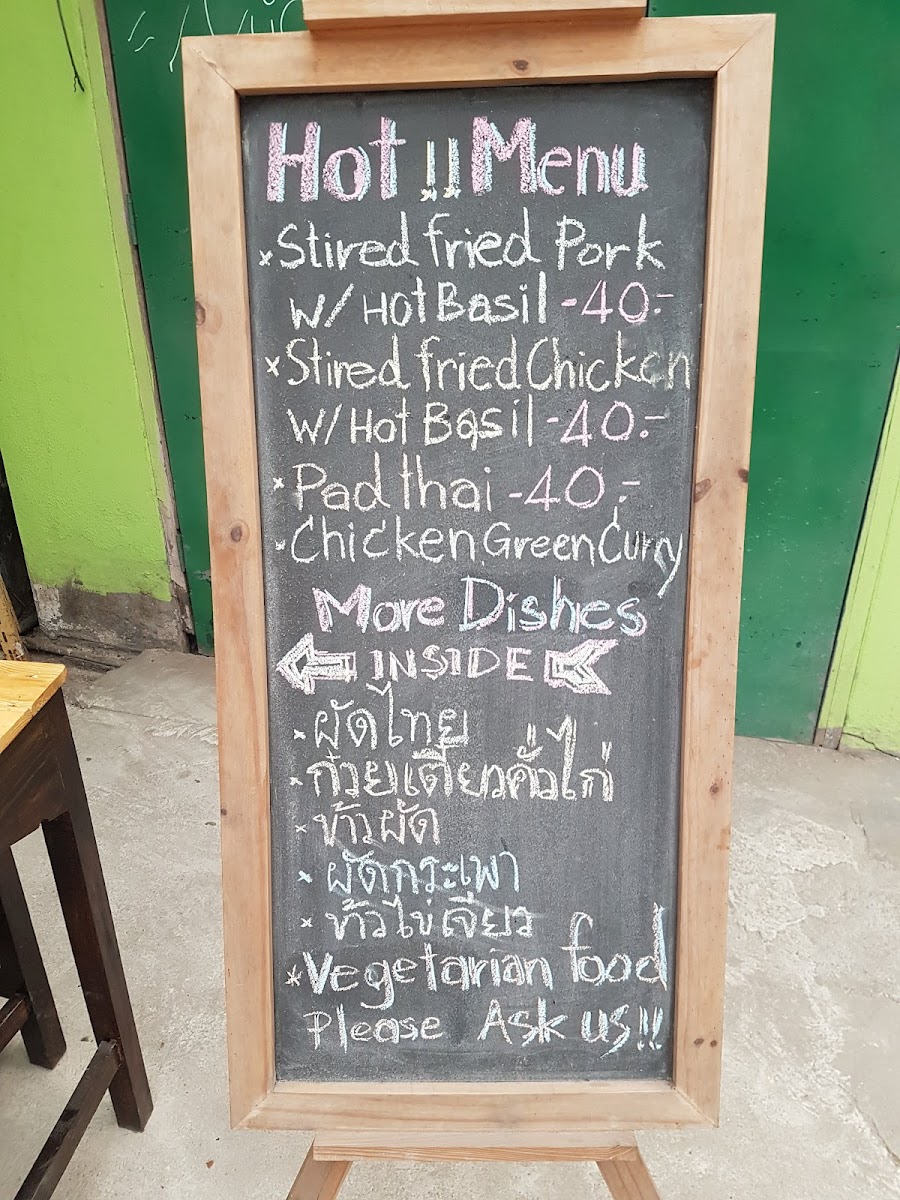 Hot !! Menu
×Stired fried Pork
W/ Hot Basil -40.-
×Stired fried Chicken
W/ Hot Basil -40.-
×Pad thai -40.-
×Chicken Green Curry
More Dishes
INSIDE
×ผัดไทย
×ก๋วยเตี๋ยวคั่วไก่
×ข้าวผัด
×ผัดกระเพา
×ข้าวไข่เจียว
*Vegetarian food
Please Ask us!!